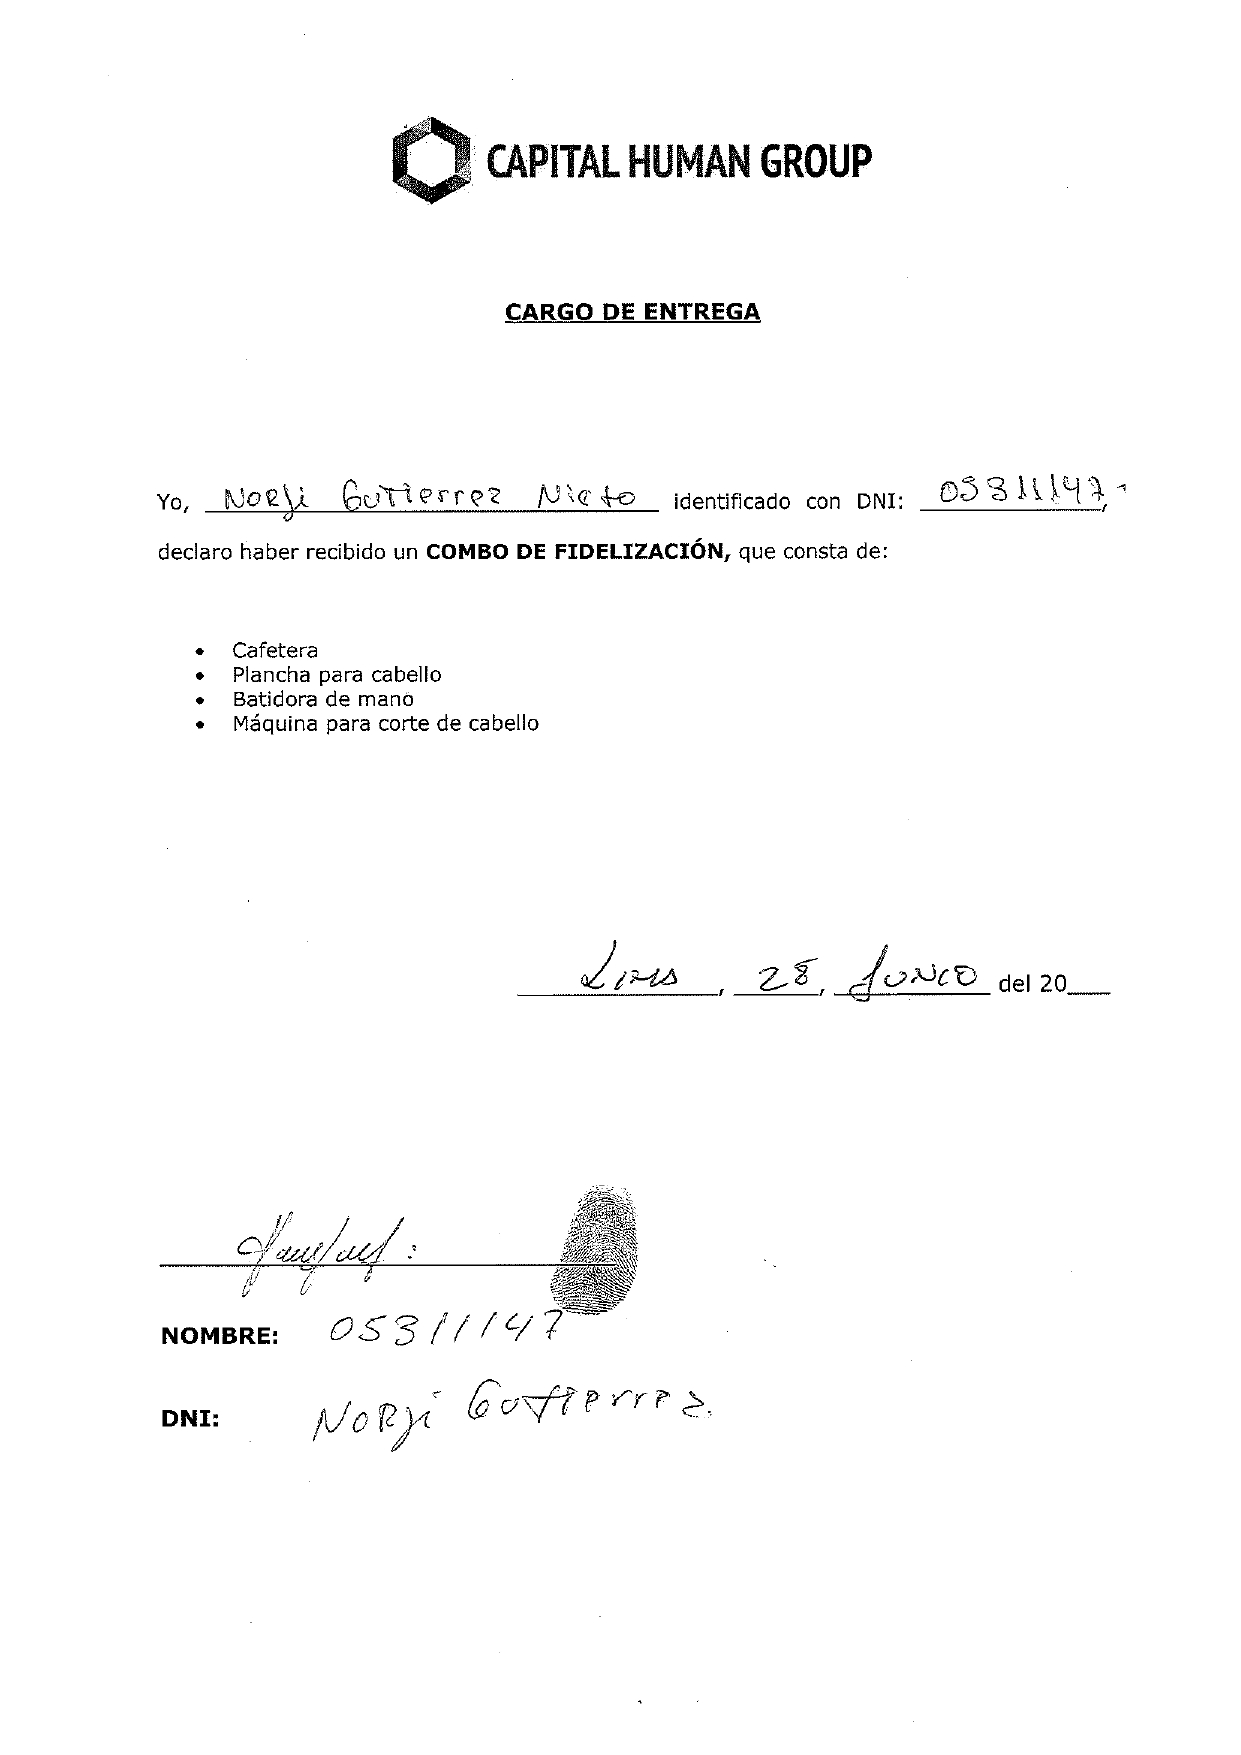 CAPITAL HUMAN GROUP
CARGO DE ENTREGA
Yo, Norji Gutierrez Nieto identificado con DNI: 05311147,
declaro haber recibido un COMBO DE FIDELIZACIÓN, que consta de:
• Cafetera
• Plancha para cabello
• Batidora de mano
• Máquina para corte de cabello
Lima, 28, Junio del 20___
NOMBRE: 05311147
DNI: Norji Gutierrez.